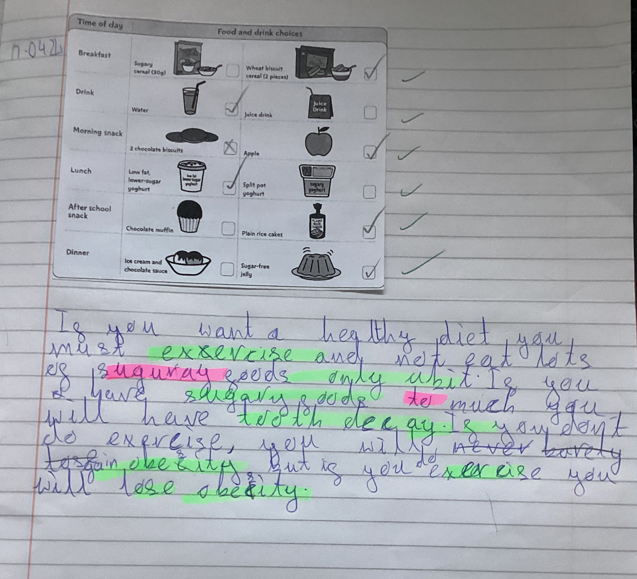 Time of day
Food and drink choices
Breakfast
Sugary
cereal (30g)
Wheat biscuit
cereal (2 pieces)
Drink
Water
Juice drink
Juice
Drink
Morning snack
2 chocolate biscuits
Apple
Lunch
Low fat,
lower-sugar
yoghurt
Split pot
yoghurt
After school
snack
Chocolate muffin
Plain rice cakes
Dinner
Ice cream and
chocolate sauce
Sugar-free
jelly
If you want a heglthy diet you
must exxercise and not eat lots
of suguray foods only abit. If you
have sugary foods to much you
will have tooth decay. If you don't
do exercise, you will never barely
gain obesity but if you do exercise you
will lose obesity.